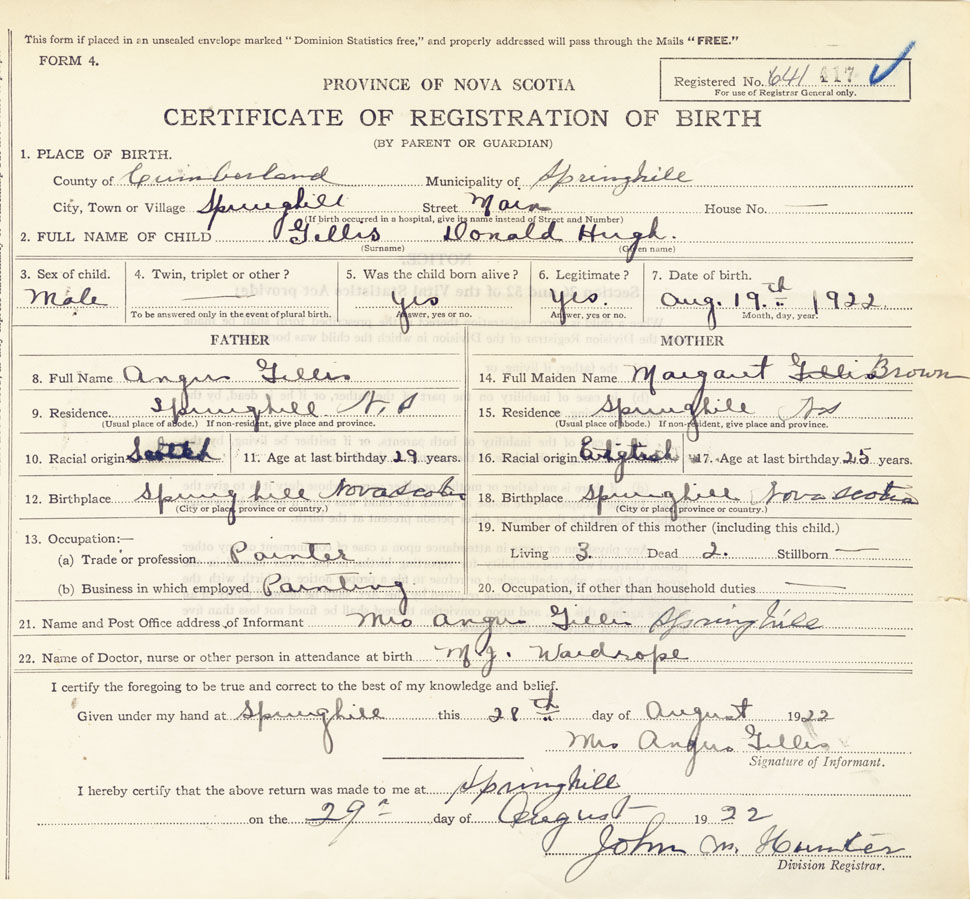 This form if placed in an unsealed envelope marked "Dominion Statistics free," and properly addressed will pass through the Mails "FREE."
FORM 4.
Registered No. 641 417 ✓
For use of Registrar General only.
PROVINCE OF NOVA SCOTIA
CERTIFICATE OF REGISTRATION OF BIRTH
(BY PARENT OR GUARDIAN)
1. PLACE OF BIRTH.
County of Cumberland Municipality of Springhill
City, Town or Village Springhill Street Main House No. —
(If birth occurred in a hospital, give its name instead of Street and Number)
2. FULL NAME OF CHILD Gillis Donald Hugh.
(Surname) (Given name)
3. Sex of child. 4. Twin, triplet or other? 5. Was the child born alive? 6. Legitimate? 7. Date of birth.
Male — Yes Yes. Aug. 19th 1922
To be answered only in the event of plural birth. Answer, yes or no. Answer, yes or no. Month, day, year.
FATHER MOTHER
8. Full Name Angus Gillis 14. Full Maiden Name Margaret Gillis Brown
9. Residence Springhill N.S 15. Residence Springhill NS
(Usual place of abode.) If non-resident, give place and province. (Usual place of abode.) If non-resident, give place and province.
10. Racial origin Scotch 11. Age at last birthday 29 years. 16. Racial origin English 17. Age at last birthday 25 years.
12. Birthplace Springhill Nova Scotia 18. Birthplace Springhill Nova Scotia
(City or place, province or country.) (City or place, province or country.)
13. Occupation:— 19. Number of children of this mother (including this child.)
(a) Trade or profession Painter Living 3 Dead 2. Stillborn —
(b) Business in which employed Painting 20. Occupation, if other than household duties —
21. Name and Post Office address of Informant Mrs Angus Gillis Springhill
22. Name of Doctor, nurse or other person in attendance at birth M.J. Wardrope
I certify the foregoing to be true and correct to the best of my knowledge and belief.
Given under my hand at Springhill this 28th day of August 1922
Mrs Angus Gillis
Signature of Informant.
I hereby certify that the above return was made to me at Springhill
on the 29 day of August 1922
John M. Hunter
Division Registrar.